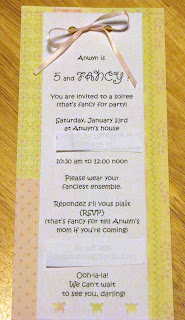 Anwyn is
5 and FANCY
You are invited to a soiree
(that's fancy for party)
Saturday, January 23rd
at Anwyn's house
10:30 am to 12:00 noon
Please wear your
fanciest ensemble.
Répondez s'il vous plaît
(RSVP)
(that's fancy for tell Anwyn's
mom if you're coming)
Ooh-la-la!
We can't wait
to see you, darling!